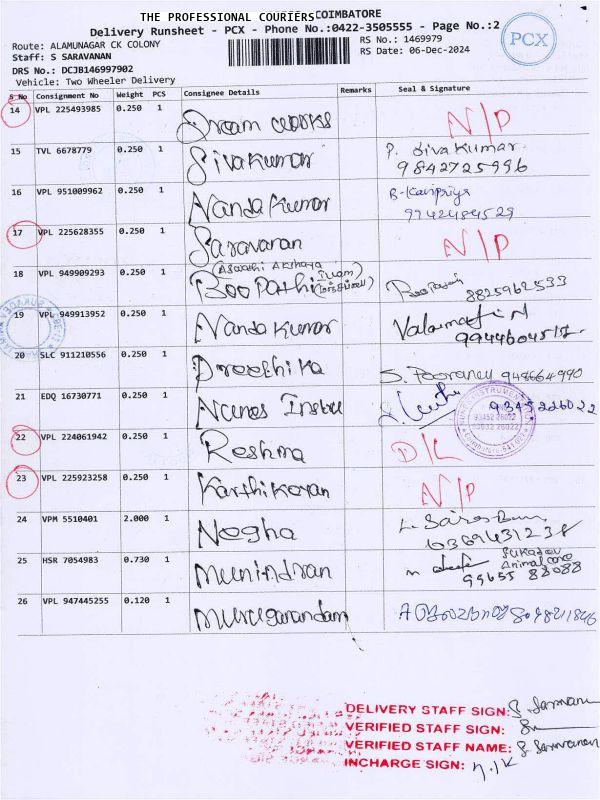 THE PROFESSIONAL COURIERS COIMBATORE
Delivery Runsheet - PCX - Phone No.:0422-3505555 - Page No.:2
Route: ALAMUNAGAR CK COLONY
Staff: S SARAVANAN
RS No.: 1469979
RS Date: 06-Dec-2024
PCX
DRS No.: DCJB146997902
Vehicle: Two Wheeler Delivery
S No Consignment No Weight PCS Consignee Details Remarks Seal & Signature
14 VPL 225493985 0.250 1 Dream works N/P
15 TVL 6678779 0.250 1 Sivakumar P. Sivakumar
9842725996
16 VPL 951009962 0.250 1 Nanda Kumar
9942484529
17 VPL 225628355 0.250 1 Saravanan N/P
18 VPL 949909293 0.250 1 Boopathi 8825962533
19 VPL 949913952 0.250 1 Nanda kumar Valarmathi N
9944604517
20 SLC 911210556 0.250 1 Preethika 948664990
21 EDQ 16730771 0.250 1 9345226022
22 VPL 224061942 0.250 1 Reshma D/L
23 VPL 225923258 0.250 1 Karthikeyan N/P
24 VPM 5510401 2.000 1 Negha
6369431238
25 HSR 7054983 0.730 1 Munindran Animal care
99655 88088
26 VPL 947445255 0.120 1 Muruganandam
DELIVERY STAFF SIGN: S Saravanan
VERIFIED STAFF SIGN:
VERIFIED STAFF NAME: S. Saravanan
INCHARGE SIGN: